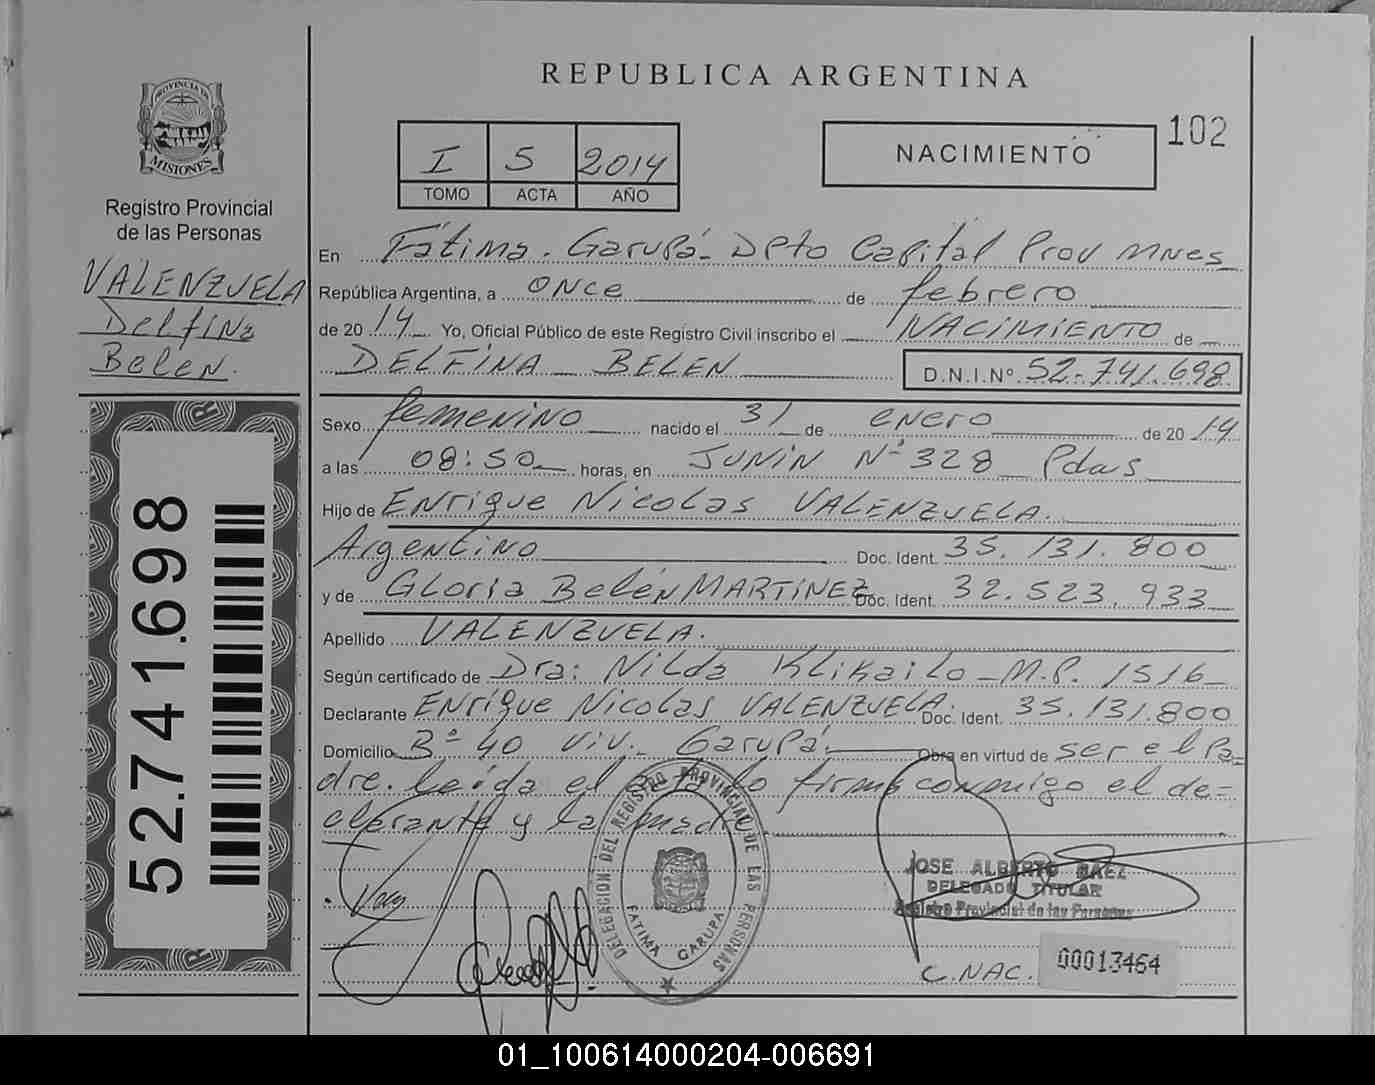 REPUBLICA ARGENTINA
PROVINCIA DE
MISIONES
Registro Provincial
de las Personas
VALENZUELA
Delfina
Belén.
52.741.698
I 5 2014
TOMO ACTA AÑO
NACIMIENTO
102
En Fátima. Garupá. Dpto Capital Prov Mnes
República Argentina, a once de febrero
de 20 14 Yo, Oficial Público de este Registro Civil inscribo el NACIMIENTO de
DELFINA BELEN D.N.I.Nº 52.741.698
Sexo femenino nacido el 31 de enero de 20 14
a las 08:50 horas, en JUNIN Nº 328 Pdas
Hijo de Enrique Nicolas VALENZUELA.
Argentino Doc. Ident. 35.131.800
y de Gloria Belén MARTINEZ Doc. Ident. 32.523.933
Apellido VALENZUELA.
Según certificado de Dra: Nilda Klikailo M.P. 1516
Declarante Enrique Nicolas VALENZUELA. Doc. Ident. 35.131.800
Domicilio Bº 40 viv. Garupá. Obra en virtud de ser el Pa
dre. Leída el acta lo firma conmigo el de=
clarante y la madre.
DELEGACION DEL REGISTRO PROVINCIAL DE LAS PERSONAS
FATIMA GARUPA
JOSE ALBERTO BAEZ
DELEGADO TITULAR
Registro Provincial de las Personas
C.NAC. 00013464
01_100614000204-006691